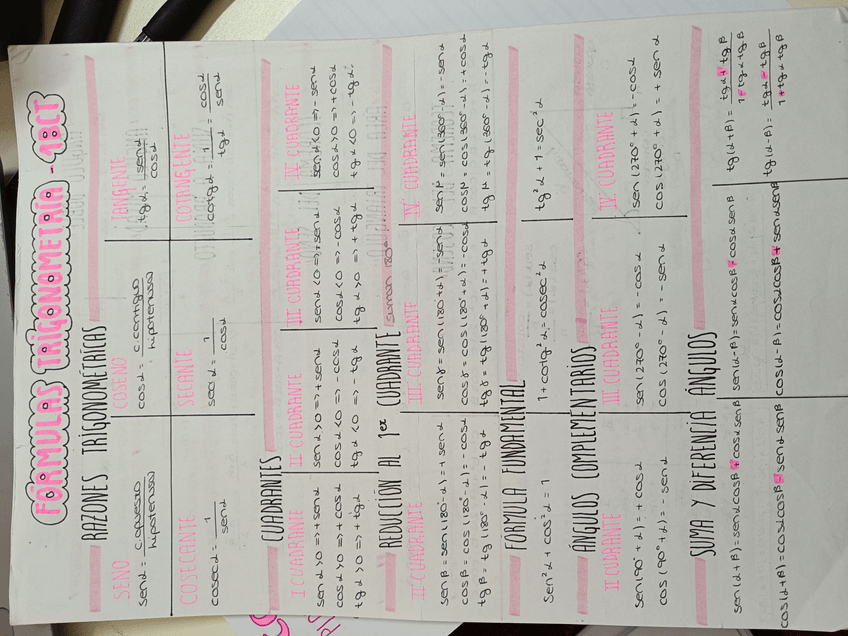 FÓRMULAS TRIGONOMETRÍA - 1BCT
RAZONES TRIGONOMÉTRICAS
SENO
senα = c.opuesto / hipotenusa
COSENO
cosα = c.contiguo / hipotenusa
TANGENTE
tgα = senα / cosα
COSECANTE
cosecα = 1 / senα
SECANTE
secα = 1 / cosα
COTANGENTE
cotgα = 1 / tgα = cosα / senα
CUADRANTES
I CUADRANTE
senα>0 => + senα
cosα>0 => + cosα
tgα>0 => + tgα
II CUADRANTE
senα>0 => + senα
cosα<0 => - cosα
tgα<0 => - tgα
III CUADRANTE
senα<0 => - senα
cosα<0 => - cosα
tgα>0 => + tgα
IV CUADRANTE
senα<0 => - senα
cosα>0 => + cosα
tgα<0 => - tgα
REDUCCIÓN AL 1er CUADRANTE suman 180º
II CUADRANTE
senβ = sen(180º-α) = + senα
cosβ = cos(180º-α) = - cosα
tgβ = tg(180º-α) = - tgα
III CUADRANTE
senγ = sen(180º+α) = -senα
cosγ = cos(180º+α) = -cosα
tgγ = tg(180º+α) = + tgα
IV CUADRANTE
senμ = sen(360º-α) = -senα
cosμ = cos(360º-α) = + cosα
tgμ = tg(360º-α) = -tgα
FÓRMULA FUNDAMENTAL
sen²α + cos²α = 1
1 + cotg²α = cosec²α
tg²α + 1 = sec²α
ÁNGULOS COMPLEMENTARIOS
II CUDRANTE
sen(90º+α) = + cosα
cos(90º+α) = - senα
III CUADRANTE
sen(270º-α) = - cosα
cos(270º-α) = - senα
IV CUADRANTE
sen(270º+α) = - cosα
cos(270º+α) = + senα
SUMA Y DIFERENCIA ÁNGULOS
sen(α+β) = senα cosβ + cosα senβ
cos(α+β) = cosα cosβ - senα senβ
sen(α-β) = senα cosβ - cosα senβ
cos(α-β) = cosα cosβ + senα senβ
tg(α+β) = tgα + tgβ / 1 - tgα tgβ
tg(α-β) = tgα - tgβ / 1 + tgα tgβ